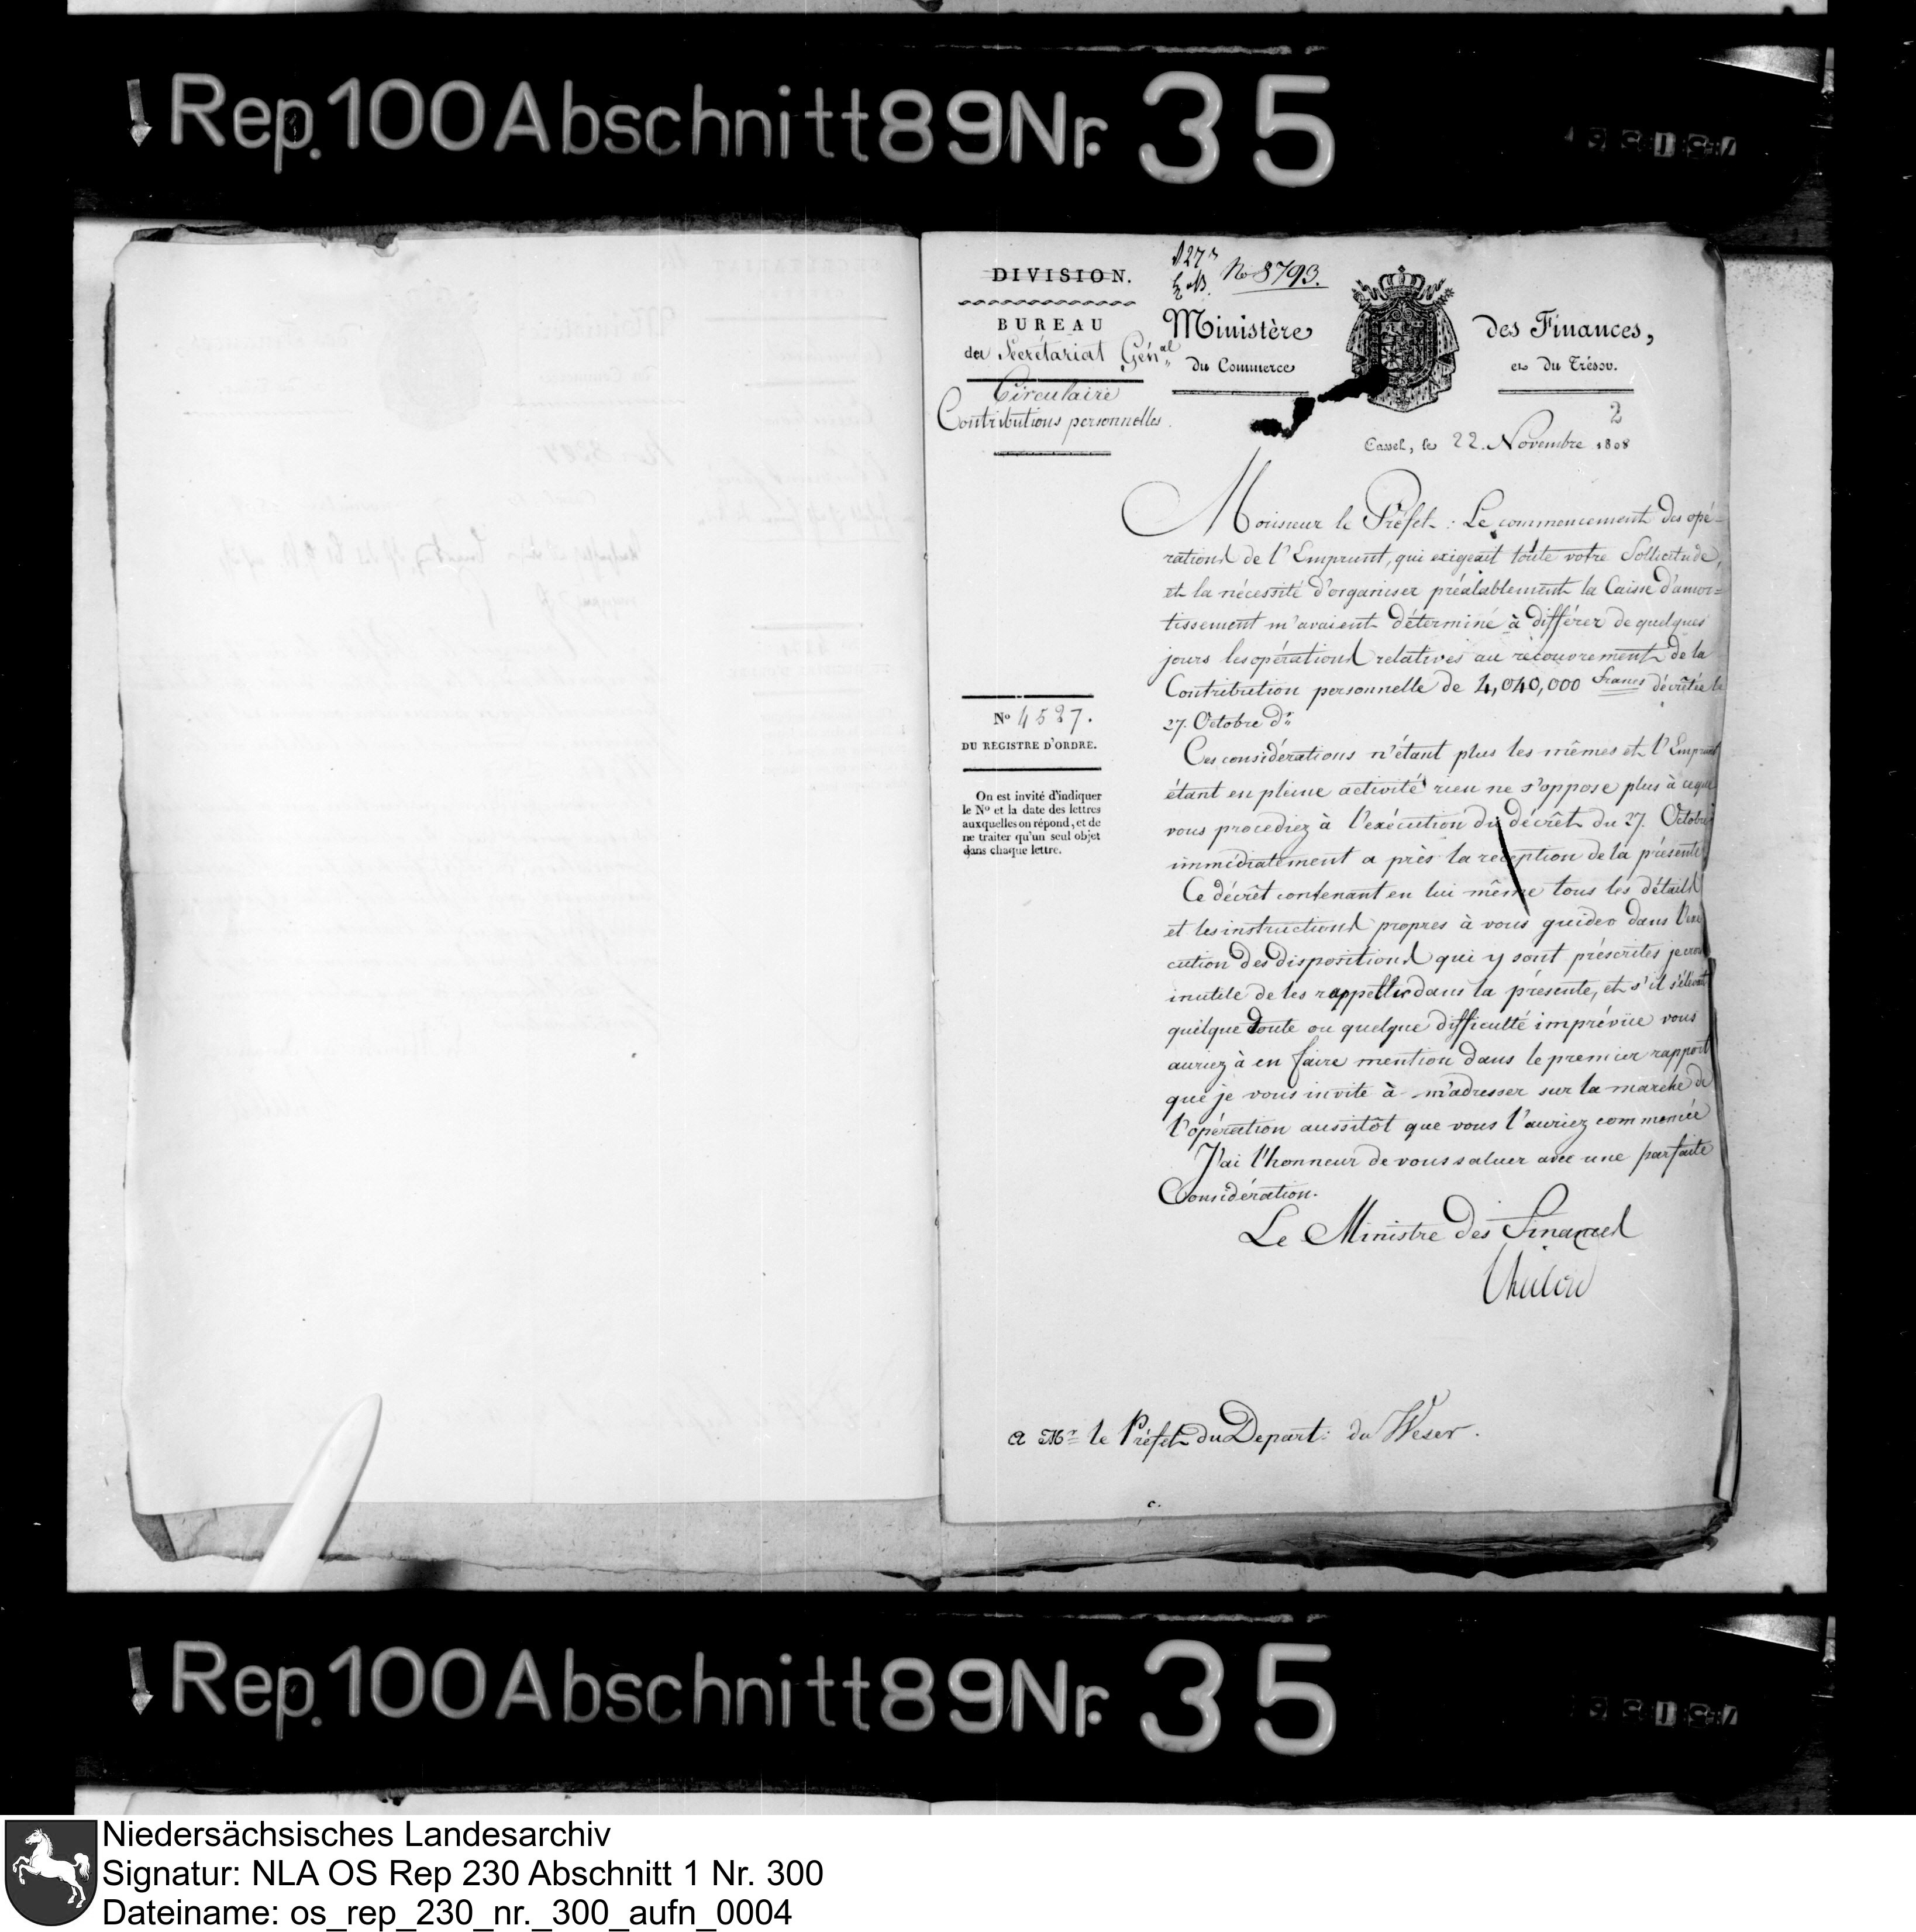 Rep. 100 Abschnitt 89 Nr. 35
DIVISION.
No 8793.
BUREAU
du Secrétariat Génal
Circulaire
Contributions personnelles.
Ministère des Finances,
du Commerce et du Trésor.
2
Cassel, le 22. Novembre 1808
Monsieur le Préfet: Le commencement des opé-
rations de l'Emprunt, qui exigeait toute votre Sollicitude,
et la nécessité d'organiser préalablement la Caisse d'amor=
tissement m'avaient déterminé à différer de quelques
jours les opérations relatives au recouvrement de la
Contribution personnelle de 4,040,000 francs décrétée le
27. Octobre dr
Ces considérations n'étant plus les mêmes et l'Emprunt
étant en pleine activité rien ne s'oppose plus à ceque
vous procediez à l'exécution du décrêt du 27. Octobre
immédiatement a près la reception de la présente
Ce décrêt contenant en lui même tous les détails
et les instructions propres à vous guider dans l'exé
cution des dispositions qui y sont préscrites je crois
inutile de les rappeller dans la présente, et s'il s'élevait
quelque doute ou quelque difficulté imprévüe vous
auriez à en faire mention dans le premier rapport
que je vous invite à m'adresser sur la marche de
l'opération aussitôt que vous l'auriez commencée
J'ai l'honneur de vous saluer avec une parfaite
Considération.
Le Ministre des Finances
No 4527.
DU REGISTRE D'ORDRE.
On est invité d'indiquer
le No et la date des lettres
auxquelles on répond, et de
ne traiter qu'un seul objet
dans chaque lettre.
A Mr le Préfet du Depart: du Weser.
Rep. 100 Abschnitt 89 Nr. 35
Niedersächsisches Landesarchiv
Signatur: NLA OS Rep 230 Abschnitt 1 Nr. 300
Dateiname: os_rep_230_nr._300_aufn_0004